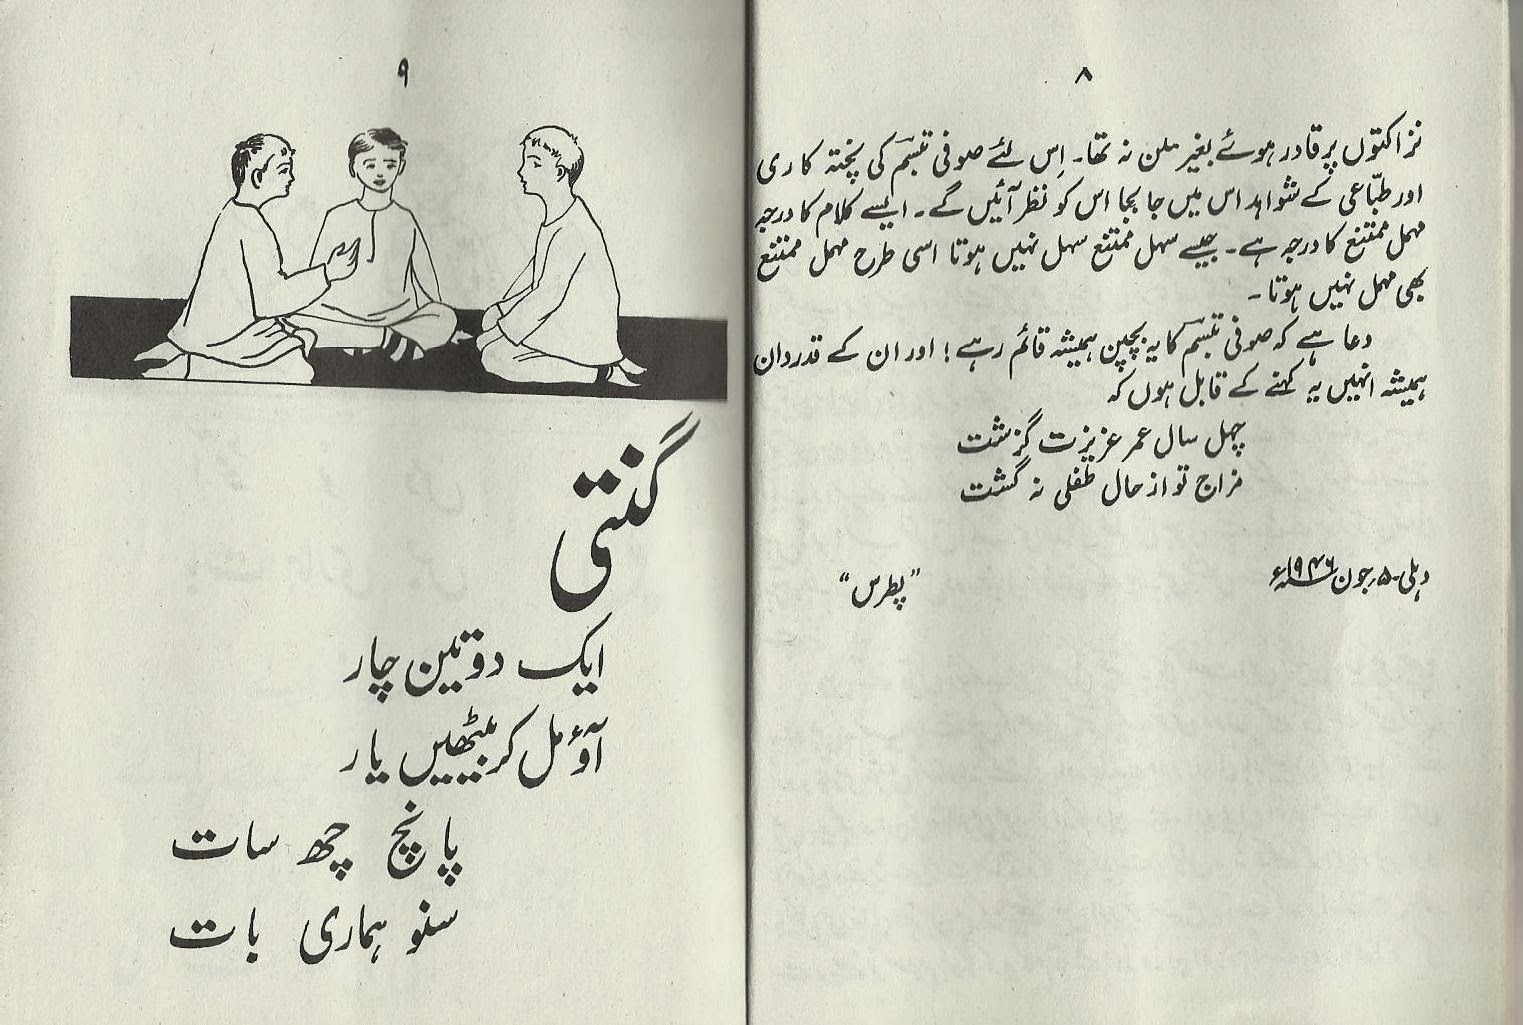 ۸
نزاکتوں پر قادر ہوئے بغیر ملن نہ تھا۔ اِس لئے صوفی تبسّم کی پختہ کاری
اور طبّاعی کے شواہد اس میں جا بجا اس کو نظر آئیں گے۔ ایسے کلام کا درجہ
مہمل ممتنع کا درجہ ہے۔ جیسے سہل ممتنع سہل نہیں ہوتا اسی طرح مہمل ممتنع
بھی مہمل نہیں ہوتا۔
دعا ہے کہ صوفی تبسّم کا یہ بچپن ہمیشہ قائم رہے؛ اور ان کے قدردان
ہمیشہ انہیں یہ کہنے کے قابل ہوں کہ
چہل سال عمر عزیزت گزشت
مزاج تو از حال طفلی نہ گشت
دہلی۔ ۵ جون ۱۹۴۶ء
"پطرس"
۹
گنتی
ایک دو تین چار
آؤ مل کر بیٹھیں یار
پانچ چھ سات
سنو ہماری بات